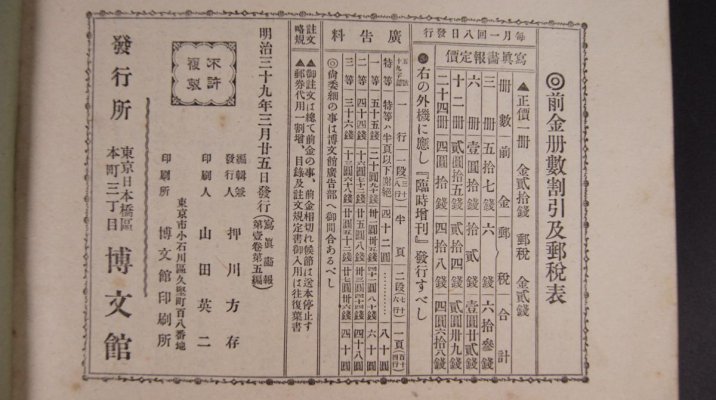 ◎前金册數割引及郵稅表
每月一回八日發行
寫眞畫報定價
▲正價一册 金貳拾錢 郵稅 金貳錢
册數 前金 郵稅 合計
三册 五拾七錢 六錢 六拾參錢
六册 壹圓拾錢 拾貳錢 壹圓廿貳錢
十二册 貳圓拾五錢 貳拾四錢 貳圓卅九錢
二十四册
右の外機に應し『臨時增刊』發行すべし
廣告料
一行 一段 半頁 二段 一頁
特等 特等ハ半頁以下謝絕 四十二圓 八十圓
一等 五十五錢 六十圓
二等 四十四錢 四十八圓
三等 三十六錢 四十圓
◎尙委細の事は博文館廣告部へ御問合あるべし
註文略規
▲御註文は總て前金の事、前金相切れ候節は送本停止す
▲郵劵代用一割增、目錄及註文規定書御入用は往復葉書
明治三十九年三月廿五日發行
(寫眞畫報第壹卷第五編)
不許複製
編輯兼發行人 押川方存
印刷人 山田英二
東京市小石川區久堅町百八番地
印刷所 博文館印刷所
發行所 東京日本橋區本町三丁目 博文館